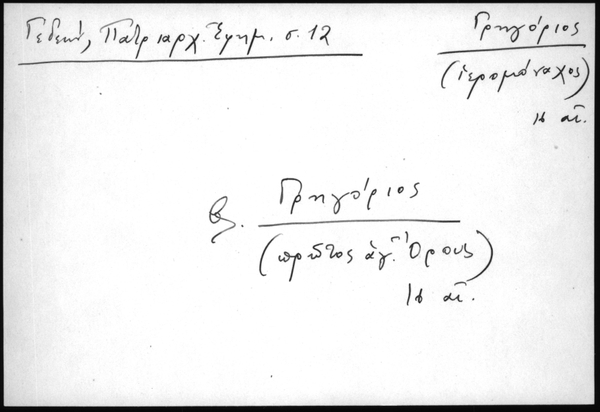 Γεδεών, Πατριαρχ. Ἐφημ. σ. 12
Γρηγόριος
(ἱερομόναχος)
16 αἰ.
βλ. Γρηγόριος
(πρῶτος ἁγ. Ὄρους)
16 αἰ.